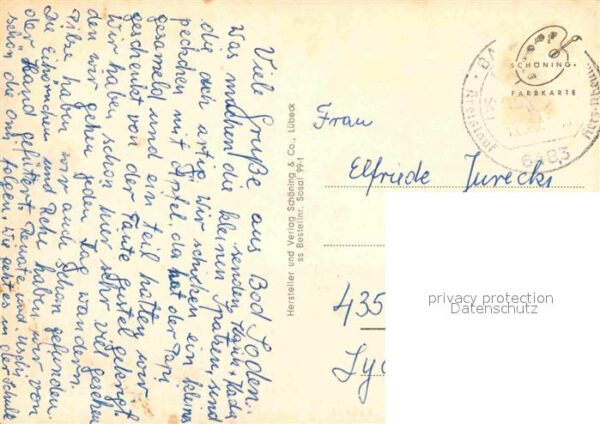 Viele Grüße aus Bad Soden.
Was machen die kleinen Knaben, sind
die auch artig. Wir schicken ein kleines
peckchen mit Äpfel. da hat der Papi
gesammelt und ein teil hatten wir
geschenkt von der Tante Gustel gekrigt.
Wir haben schon hier sehr viel gesehen
den wir gehen jeden Tag wandern.
Pilze haben wir auch schon gefunden.
Die Eihörnchen und Rehe haben wir von
der Hand gefüttert. Renate und Uschi
schön die Omi folgen. Wie geht es in der Schule
Hersteller und Verlag Schöning & Co., Lübeck
ss Bestellnr. Sosal 99-1
SCHÖNING
FARBKARTE
6483
Frau
Elfriede Jurecki
435
privacy protection
Datenschutz